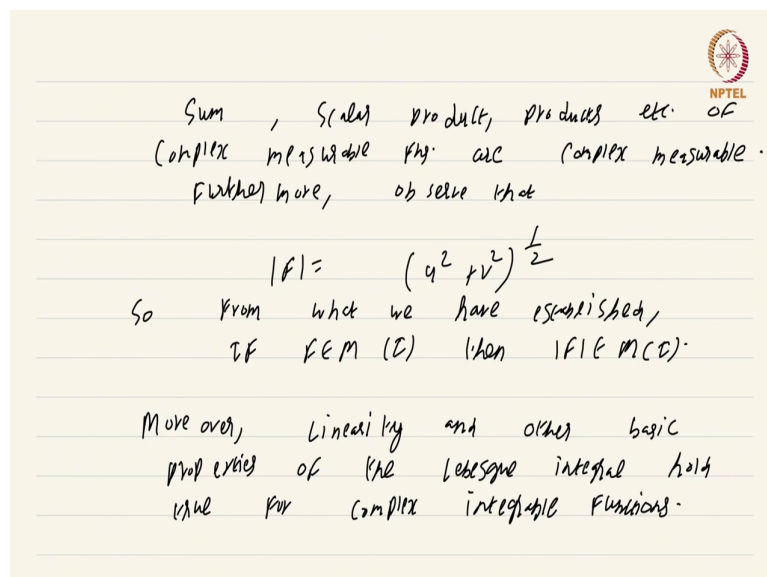 NPTEL
Sum, Scalar product, products etc. of
Complex measurable fns. are Complex measurable.
Furthermore, observe that
|F| = (u² + v²)^{1/2}
So from what we have established,
IF F ∈ M(I) then |F| ∈ M(I).
Moreover, Linearity and other basic
properties of the Lebesgue integral hold
true for complex integrable Functions.